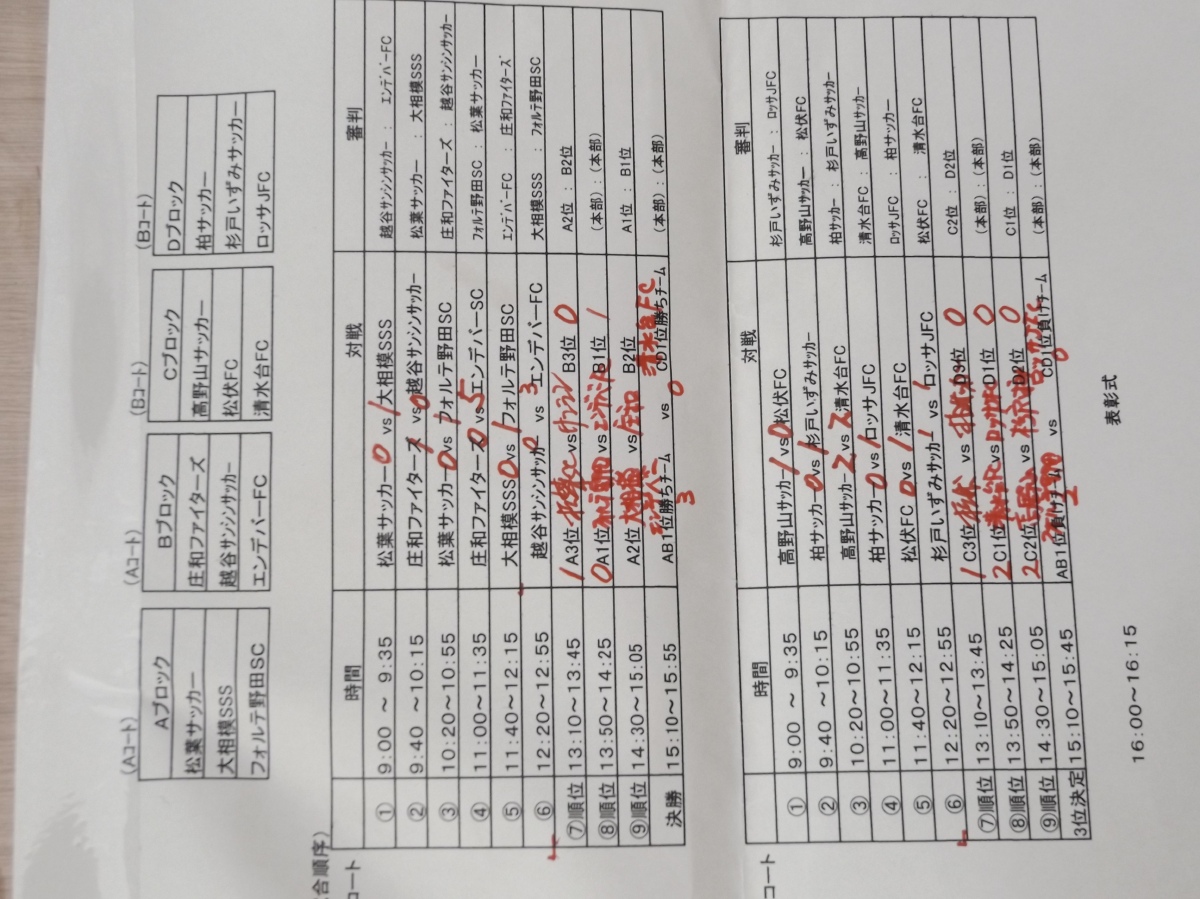 (Aコート) (Aコート) (Bコート) (Bコート)
Aブロック Bブロック Cブロック Dブロック
松葉サッカー 庄和ファイターズ 高野山サッカー 柏サッカー
大相模SSS 越谷サンシンサッカー 松伏FC 杉戸いずみサッカー
フォルテ野田SC エンデバーFC 清水台FC ロッサJFC
合順序)
コート
時間 対戦 審判
① 9:00 ～ 9:35 松葉サッカー 0 vs 1 大相模SSS 越谷サンシンサッカー : エンデバーFC
② 9:40 ～10:15 庄和ファイターズ 1 vs 0 越谷サンシンサッカー 松葉サッカー : 大相模SSS
③ 10:20～10:55 松葉サッカー 0 vs 1 フォルテ野田SC 庄和ファイターズ : 越谷サンシンサッカー
④ 11:00～11:35 庄和ファイターズ 0 vs 5 エンデバーSC フォルテ野田SC : 松葉サッカー
⑤ 11:40～12:15 大相模SSS 0 vs 1 フォルテ野田SC エンデバーFC : 庄和ファイターズ
⑥ 12:20～12:55 越谷サンシンサッカー 0 vs 3 エンデバーFC 大相模SSS : フォルテ野田SC
⑦順位 13:10～13:45 1 A3位 vs B3位 0 A2位 : B2位
⑧順位 13:50～14:25 0 A1位 vs B1位 1 (本部) : (本部)
⑨順位 14:30～15:05 A2位 大相模 vs 庄和 B2位 A1位 : B1位
決勝 15:10～15:55 AB1位勝ちチーム エンデバー 3 vs 0 清水台FC CD1位勝ちチーム (本部) : (本部)
コート
時間 対戦 審判
① 9:00 ～ 9:35 高野山サッカー 1 vs 0 松伏FC 杉戸いずみサッカー : ロッサJFC
② 9:40 ～10:15 柏サッカー 0 vs 1 杉戸いずみサッカー 高野山サッカー : 松伏FC
③ 10:20～10:55 高野山サッカー 2 vs 清水台FC 柏サッカー : 杉戸いずみサッカー
④ 11:00～11:35 柏サッカー 0 vs 1 ロッサJFC 清水台FC : 高野山サッカー
⑤ 11:40～12:15 松伏FC 0 vs 1 清水台FC ロッサJFC : 柏サッカー
⑥ 12:20～12:55 杉戸いずみサッカー 1 vs 1 ロッサJFC 松伏FC : 清水台FC
⑦順位 13:10～13:45 1 C3位 松伏 vs D3位 0 C2位 : D2位
⑧順位 13:50～14:25 2 C1位 vs D1位 0 (本部) : (本部)
⑨順位 14:30～15:05 2 C2位 高野山 vs D2位 0 C1位 : D1位
3位決定 15:10～15:45 AB1位負けチーム vs 0 CD1位負けチーム (本部) : (本部)
16:00～16:15 表彰式